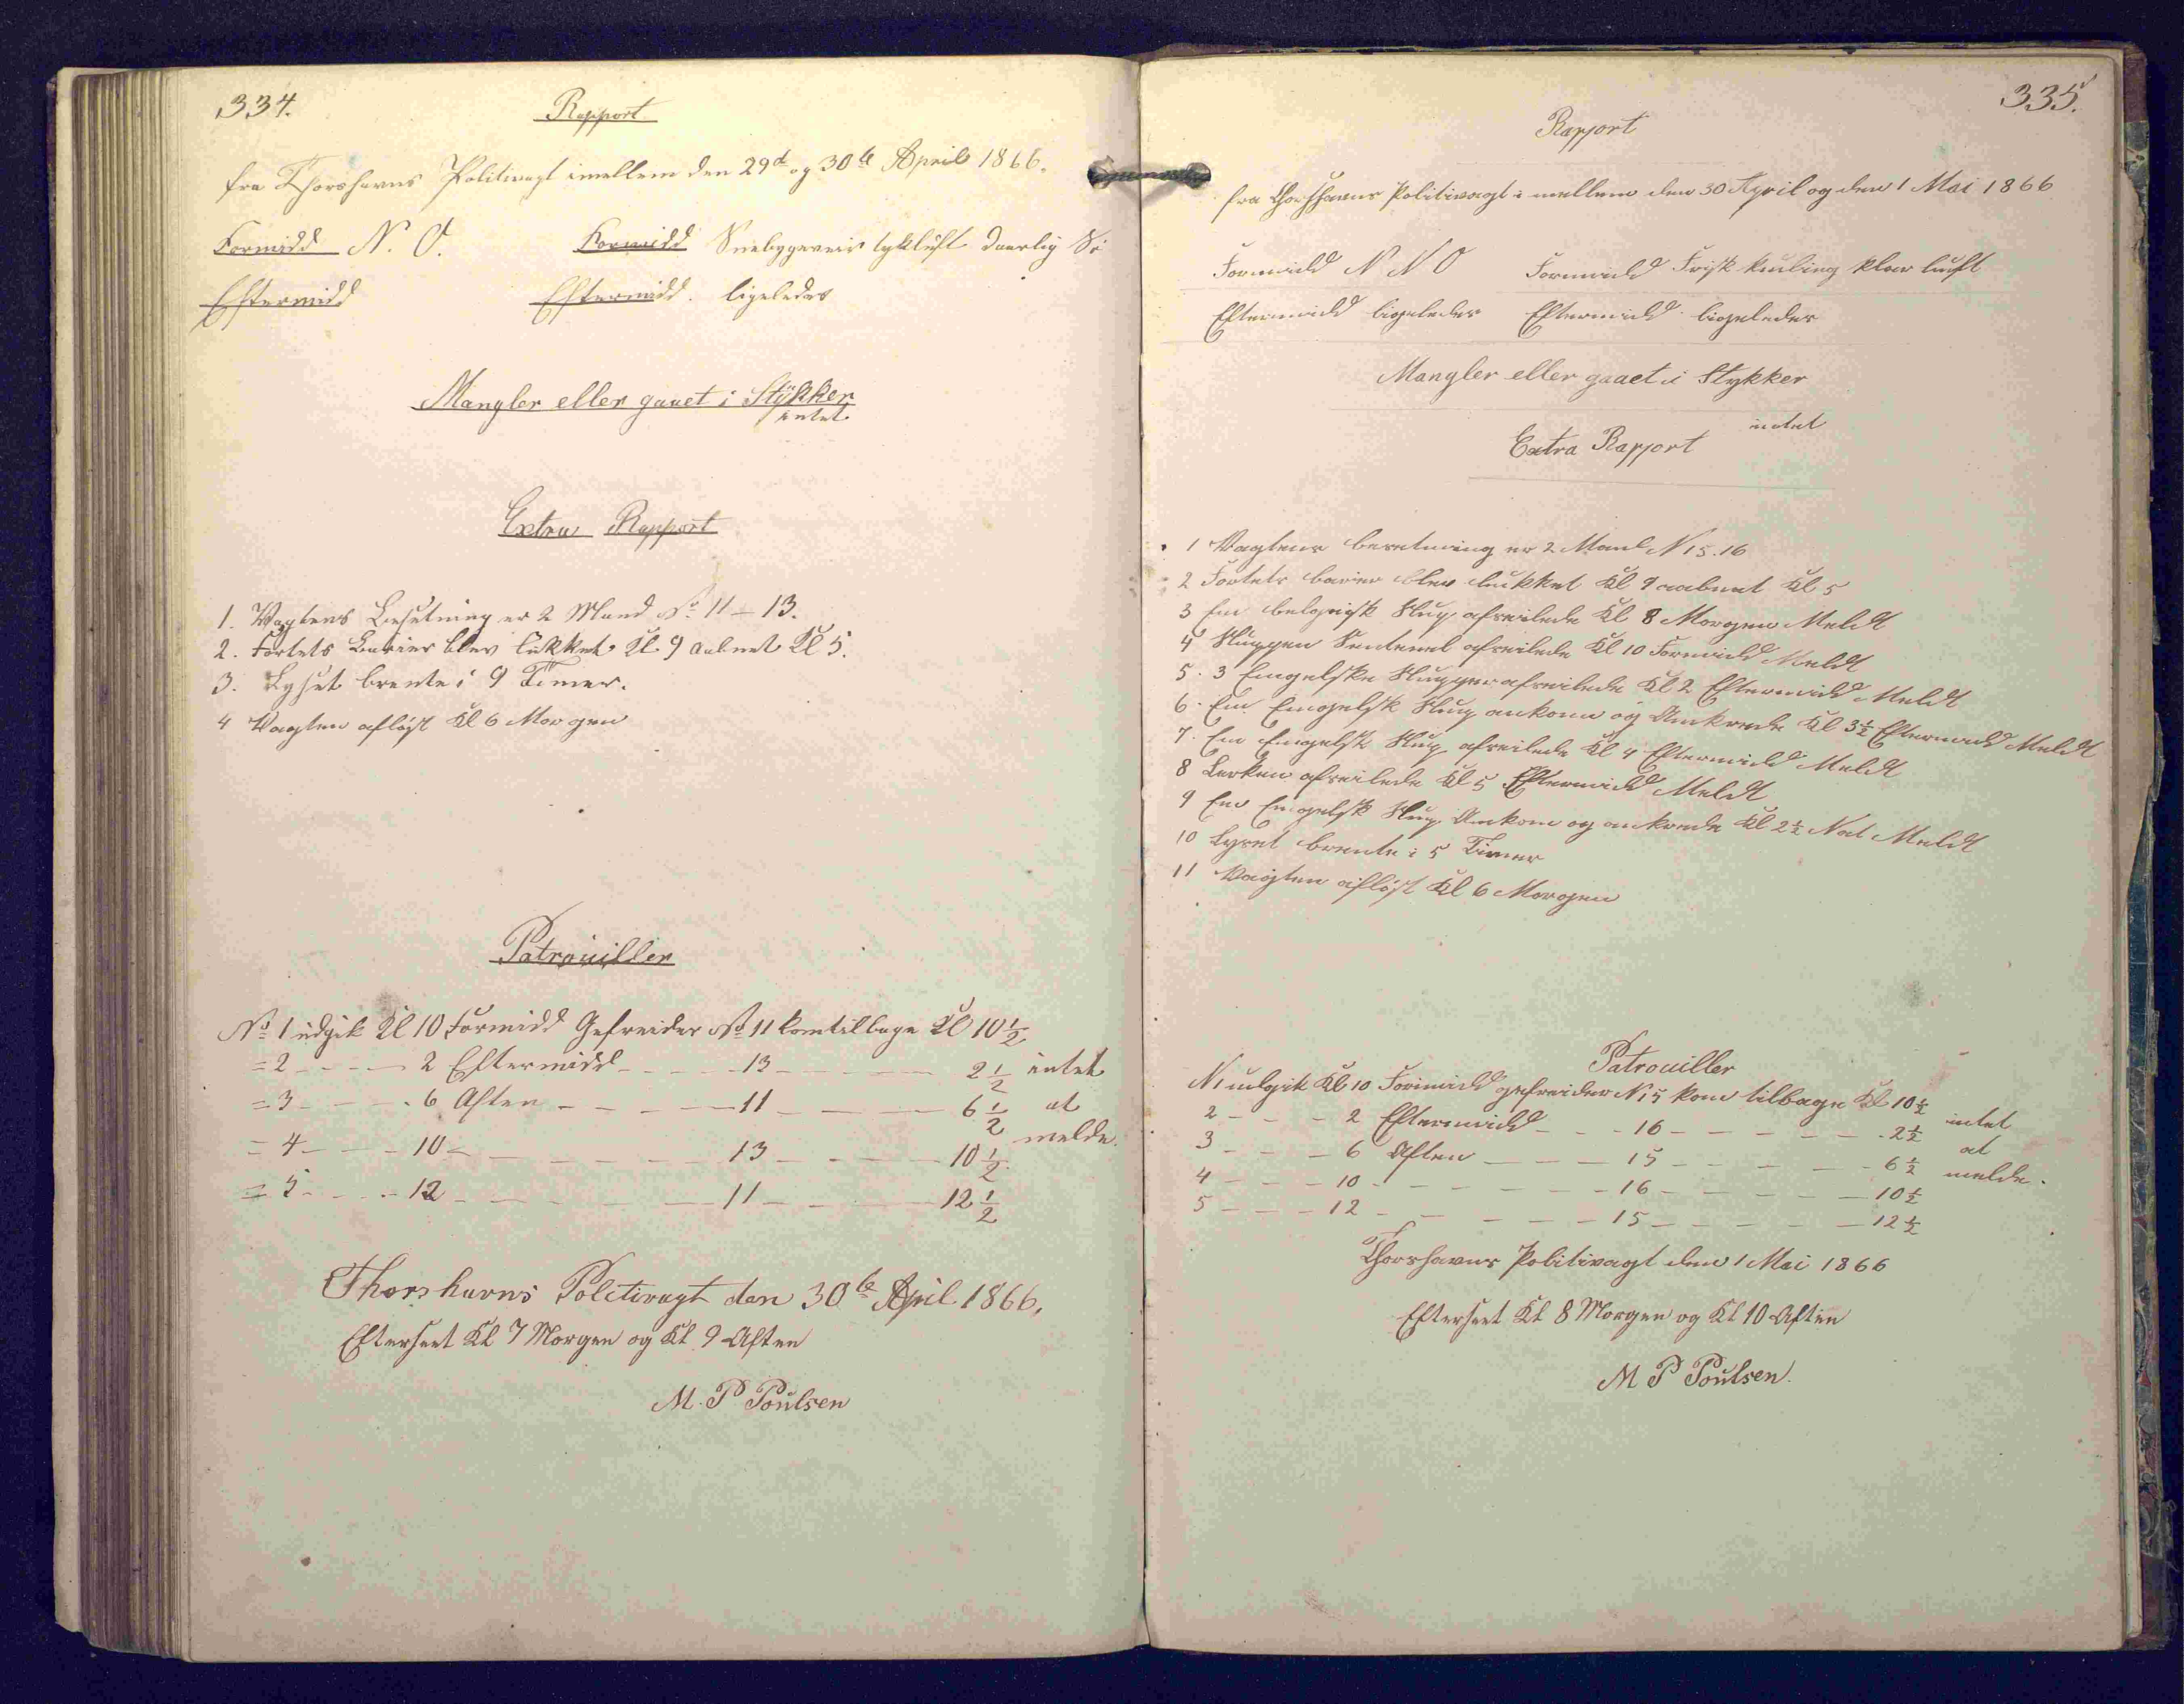 334.
Rapport
fra Thorshavns Politivagt imellem den 29d og 30te April 1866.
Formidd N. O. Formidd Sneebygeveir tykluft daarlig Si
Eftermidd Eftermidd. ligeledes
Mangler eller gaaet i Stykker
intet
Extra Rapport
1. Vagtens Besetning er 2 Mand No 11 – 13.
2. Fortets Barier blev lukket Kl. 9 aabnet Kl 5.
3. Lyset brente i 9 Timer.
4 Vagten afløst Kl 6 Morgen
Patrouiller
No 1 udgik Kl 10 Formidd Gefreider No 11 kom tilbage Kl 10 1/2
= 2 - - - - 2 Eftermidd - - - - 13 - - - - 2 1/2 intet
= 3 - - - - 6 Aften - - - - 11 - - - - 6 1/2 at
= 4 - - - - 10 - - - - - 13 - - - - 10 1/2 melde.
= 5 - - - - 12 - - - - - 11 - - - - 12 1/2
Thorshavns Politivagt den 30te April 1866.
Efterseet Kl 7 Morgen og Kl. 9 Aften
M. P Poulsen
335.
Rapport
fra Thorshavns Politivagt i mellem den 30 April og den 1 Mai 1866
Formidd N N O Formidd Frisk kuling klar luft
Eftermidd ligeledes Eftermidd ligeledes
Mangler eller gaaet i Stykker
intet
Extra Rapport
1 Vagtens besetning er 2 Mand N 15. 16
2 Fortets barier blev lukket Kl 9 aabnet Kl 5
3 En belgisk Slup afseilede Kl 8 Morgen Meldt
4 Sluppen Sentenel afseilede Kl 10 Formidd Meldt
5. 3 Engelske Slupper afseilede Kl 2 Eftermidd Meldt
6. En Engelsk Slup ankom og Ankrede Kl 3 1/2 Eftermidd Meldt
7. En Engelsk Slup afseilede Kl 4 Eftermidd Meldt
8 Lerken afseilede Kl 5 Eftermidd Meldt
9 En Engelsk Slup Ankom og ankrede Kl 2 1/2 Nat Meldt
10 Lyset brente i 5 Timer
11 Vagten afløst Kl 6 Morgen
Patrouiller
N 1 udgik Kl 10 Formidd gefreider N 15 kom tilbage Kl 10 1/2
2 - - - 2 Eftermidd - - - 16 - - - - - 2 1/2 intet
3 - - - 6 Aften - - - 15 - - - - - 6 1/2 at
4 - - - 10 - - - - - 16 - - - - - 10 1/2 melde.
5 - - - 12 - - - - - 15 - - - - - 12 1/2
Thorshavns Politivagt den 1 Mai 1866
Efterseet Kl 8 Morgen og Kl 10 Aften
M P Poulsen.